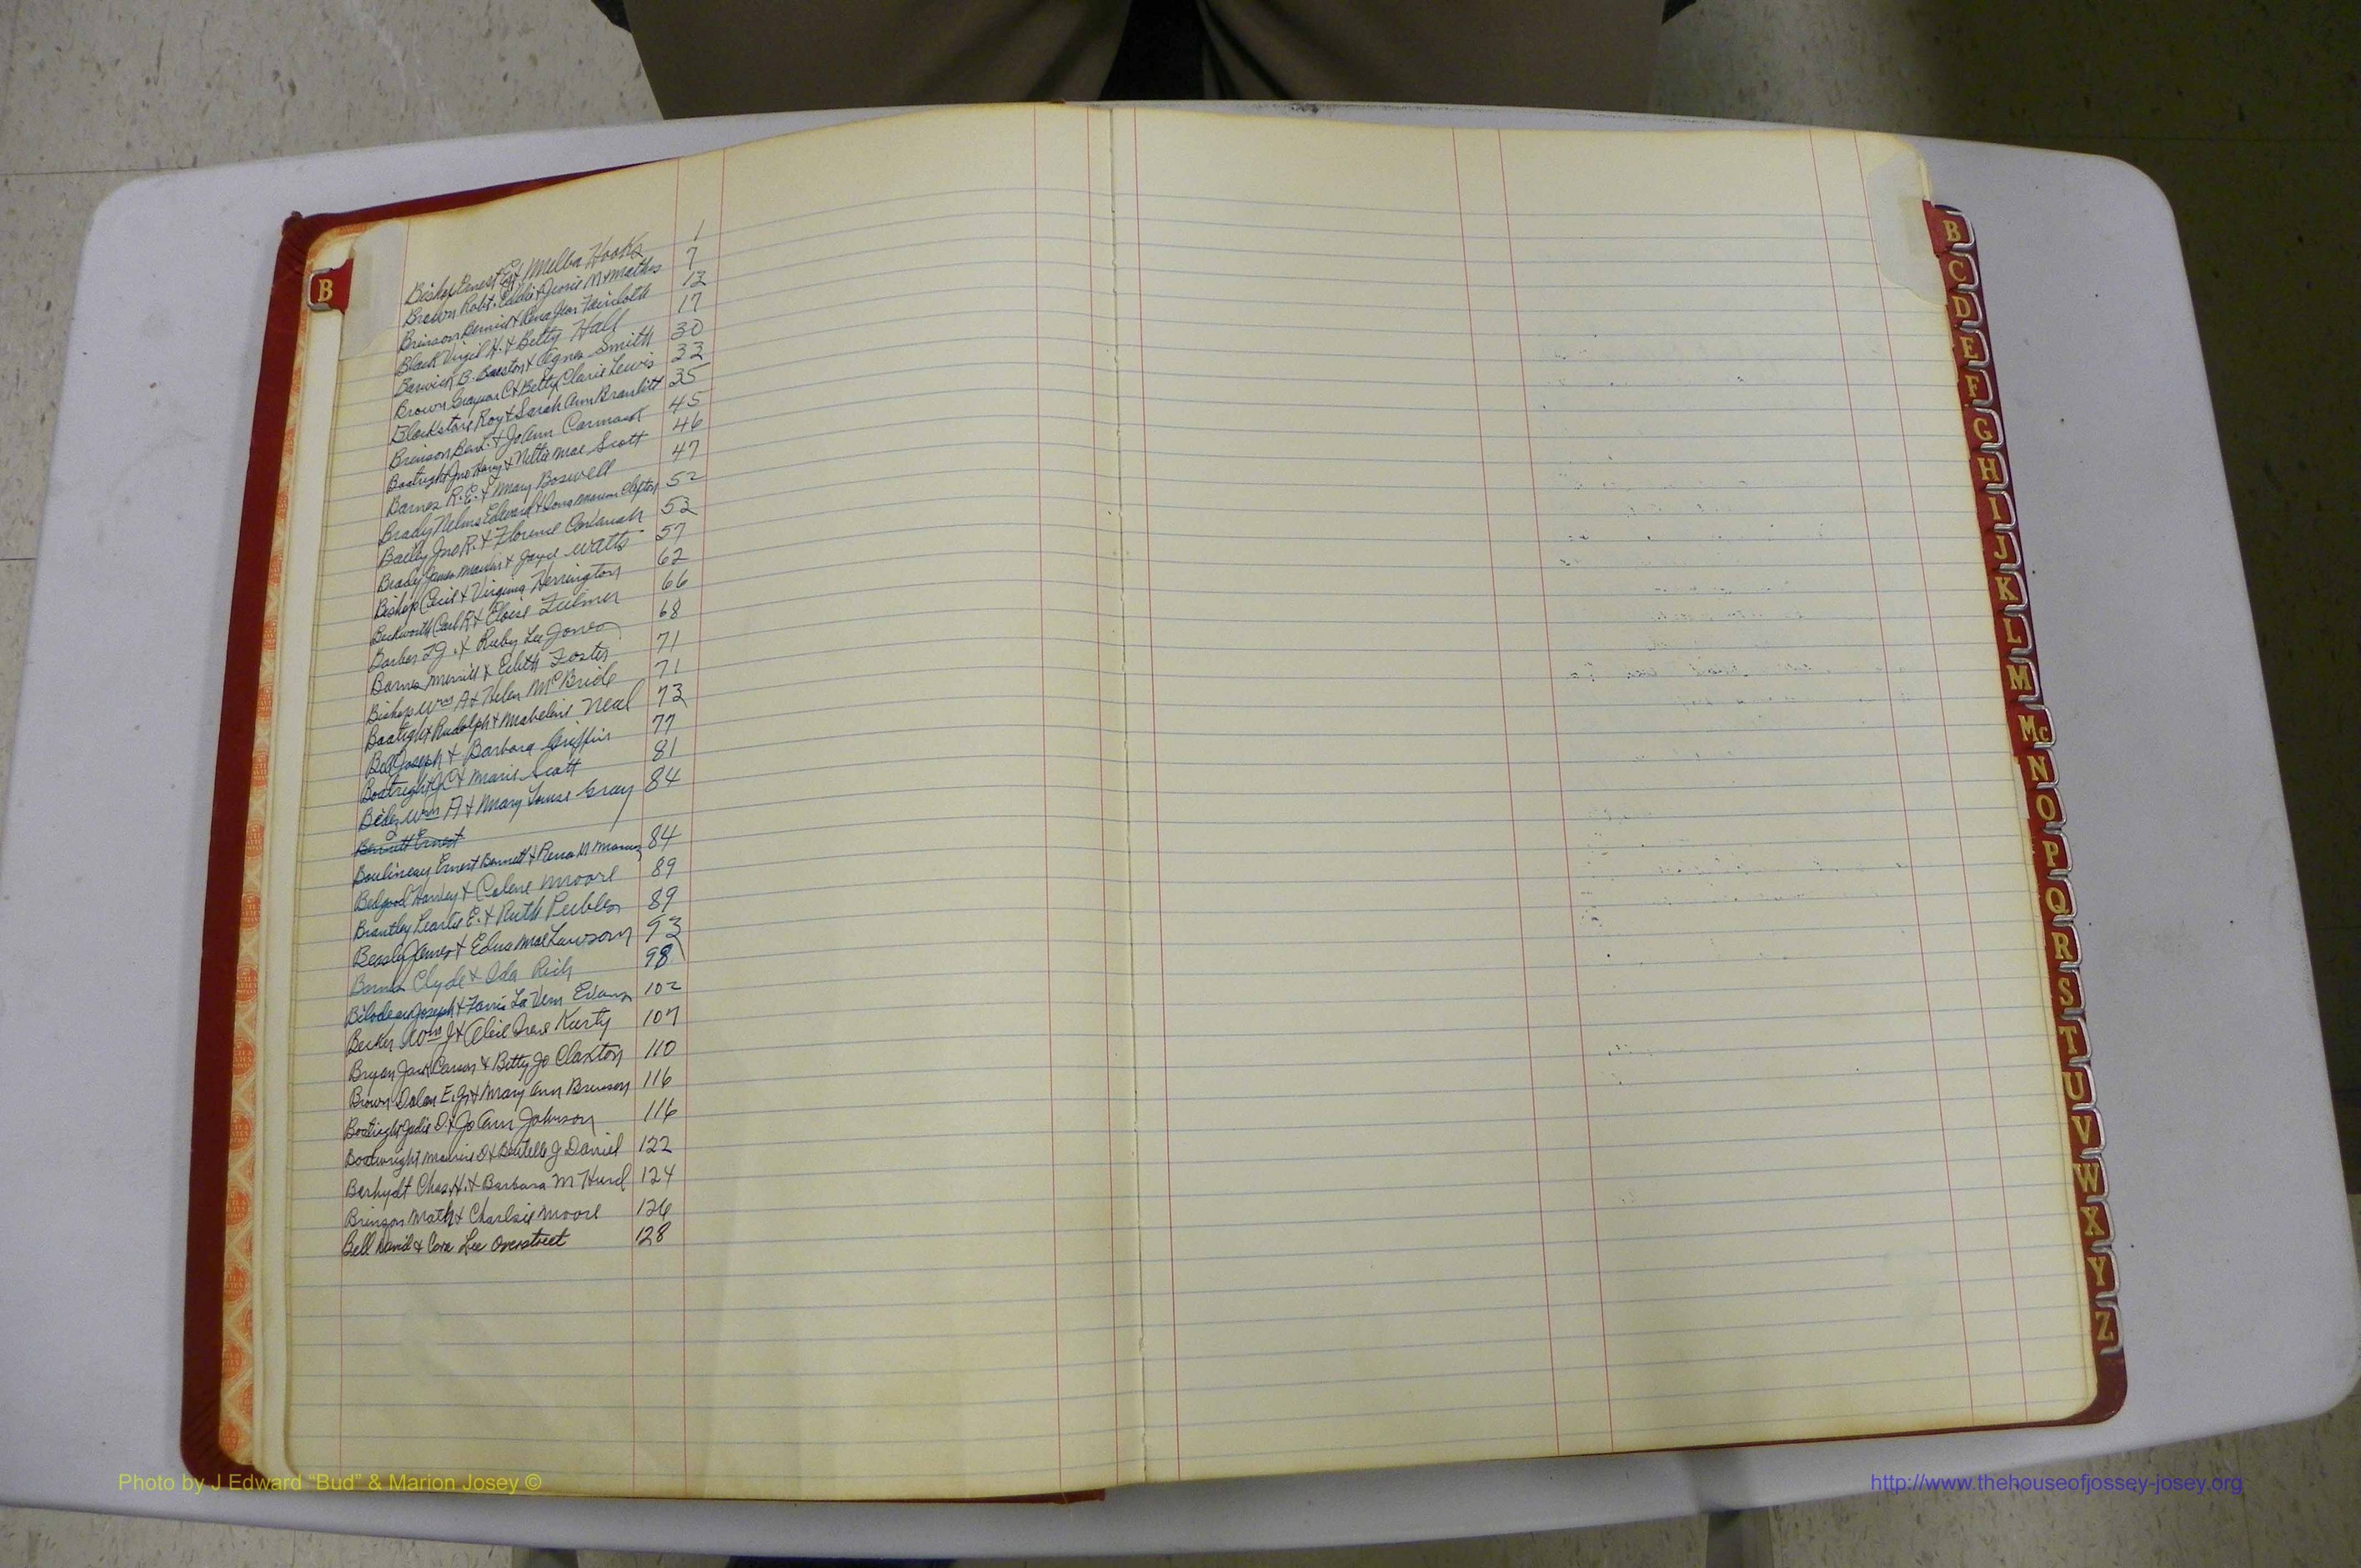 B
Bishop Ernest & Melba Hooks 1
Brown Robt. Eddie & Jessie M Mathis 7
Brinson Bennie & Rena Jean Faircloth 12
Black Virgil H. & Betty Hall 17
Barwick B. & Agnes Smith 30
Brown C & Betty Clarie Lewis 33
Blackstone Roy & Sarah Ann Branlitt 35
Brinson Ben L. & JoAnn Carmack 45
Boatright Jno Harry & Nettie Mae Scott 46
Barnes R.E. & Mary Boswell 47
Brady Nelms Edward & Dona Marion Clifton 52
Bailey Jno R. & Florence Cavanah 53
Brady James & Joyce Watts 57
Bishop Cecil & Virginia Herrington 62
Beckworth Carl R & Eloise Fulmer 66
Barber & Ruby Lee Jones 68
Barnes Merrill & Edith Foster 71
Bishop Wm A & Helen McBride 71
Boatright Rudolph & Mabeline Neal 73
Bell Joseph & Barbara Griffin 77
Boatright JC & Marie Scott 81
Wm A & Mary Louise Gray 84
Bennett Ernest
Boulineau Ernest Bennett & Rena M 84
Bedgood Harvey & Colene Moore 89
Brantley Learlie E. & Ruth Peebles 89
Beasley James & Edna Mae Lawson 93
Barnes Clyde & Ida Rich 98
Bilodeau Joseph & Farris LaVern Evans 102
Becker Wm J & Irene Kurty 107
Bryan Jack Carson & Betty Jo Claxton 110
Brown Dolan E. Jr & Mary Ann Brinson 116
Boatright Jodie D & Jo Ann Johnson 116
Boatwright D & J Daniel 122
Barhydt Chas. H. & Barbara M Hurd 124
Math & Charlsie Moore 126
Bell David & Cora Lee Overstreet 128
B
C
D
E
F
G
H
I
J
K
L
M
Mc
N
O
P
Q
R
S
T
U
V
W
X
Y
Z
Photo by J Edward “Bud” & Marion Josey ©
http://www.thehouseofjossey-josey.org